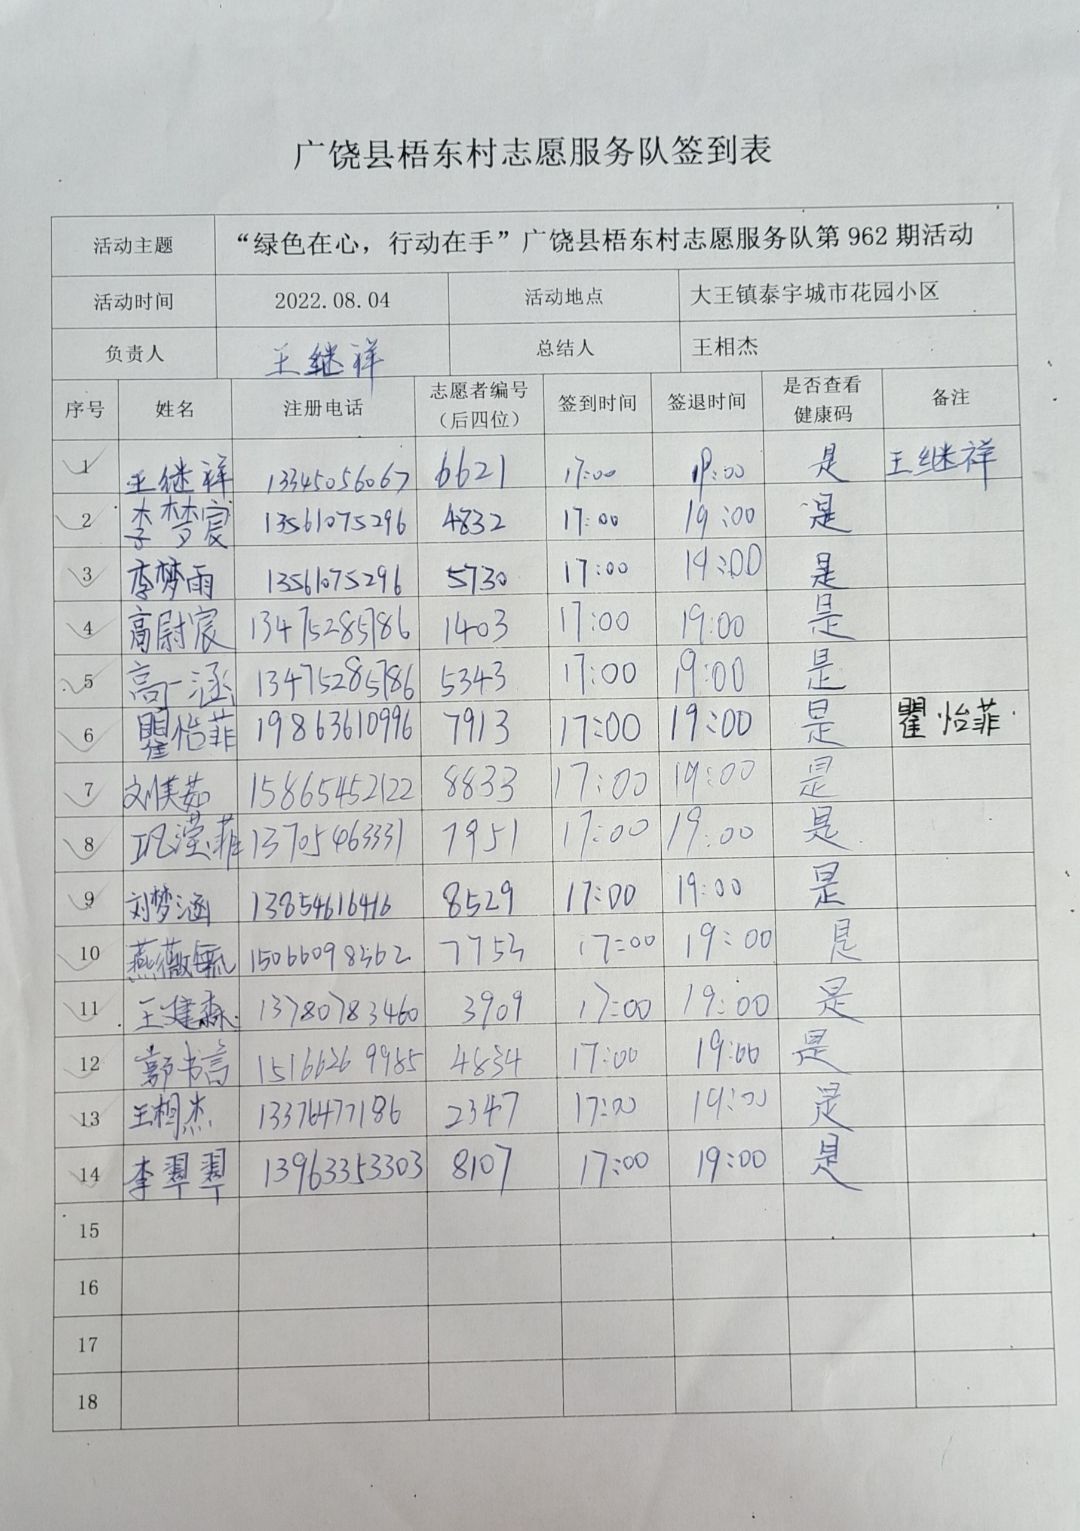 广饶县梧东村志愿服务队签到表
活动主题 “绿色在心，行动在手”广饶县梧东村志愿服务队第 962 期活动
活动时间 2022.08.04 活动地点 大王镇泰宇城市花园小区
负责人 王继祥 总结人 王相杰
序号 姓名 注册电话 志愿者编号（后四位） 签到时间 签退时间 是否查看健康码 备注
1 王继祥 13345056067 6621 17:00 19:00 是 王继祥
2 李梦宸 13561075296 4832 17:00 19:00 是
3 李梦雨 13561075296 5730 17:00 19:00 是
4 高尉宸 13475285786 1403 17:00 19:00 是
5 高一涵 13475285786 5343 17:00 19:00 是
6 瞿怡菲 19863610996 7913 17:00 19:00 是 瞿怡菲
7 刘美茹 15865452122 8833 17:00 19:00 是
8 巩滢菲 13705463331 7951 17:00 19:00 是
9 刘梦涵 13854616416 8529 17:00 19:00 是
10 燕薇 15066098362 7753 17:00 19:00 是
11 王建森 13780783460 3909 17:00 19:00 是
12 郭书言 15166269985 4834 17:00 19:00 是
13 王相杰 13376477186 2347 17:00 19:00 是
14 李翠翠 13963353303 8107 17:00 19:00 是
15
16
17
18